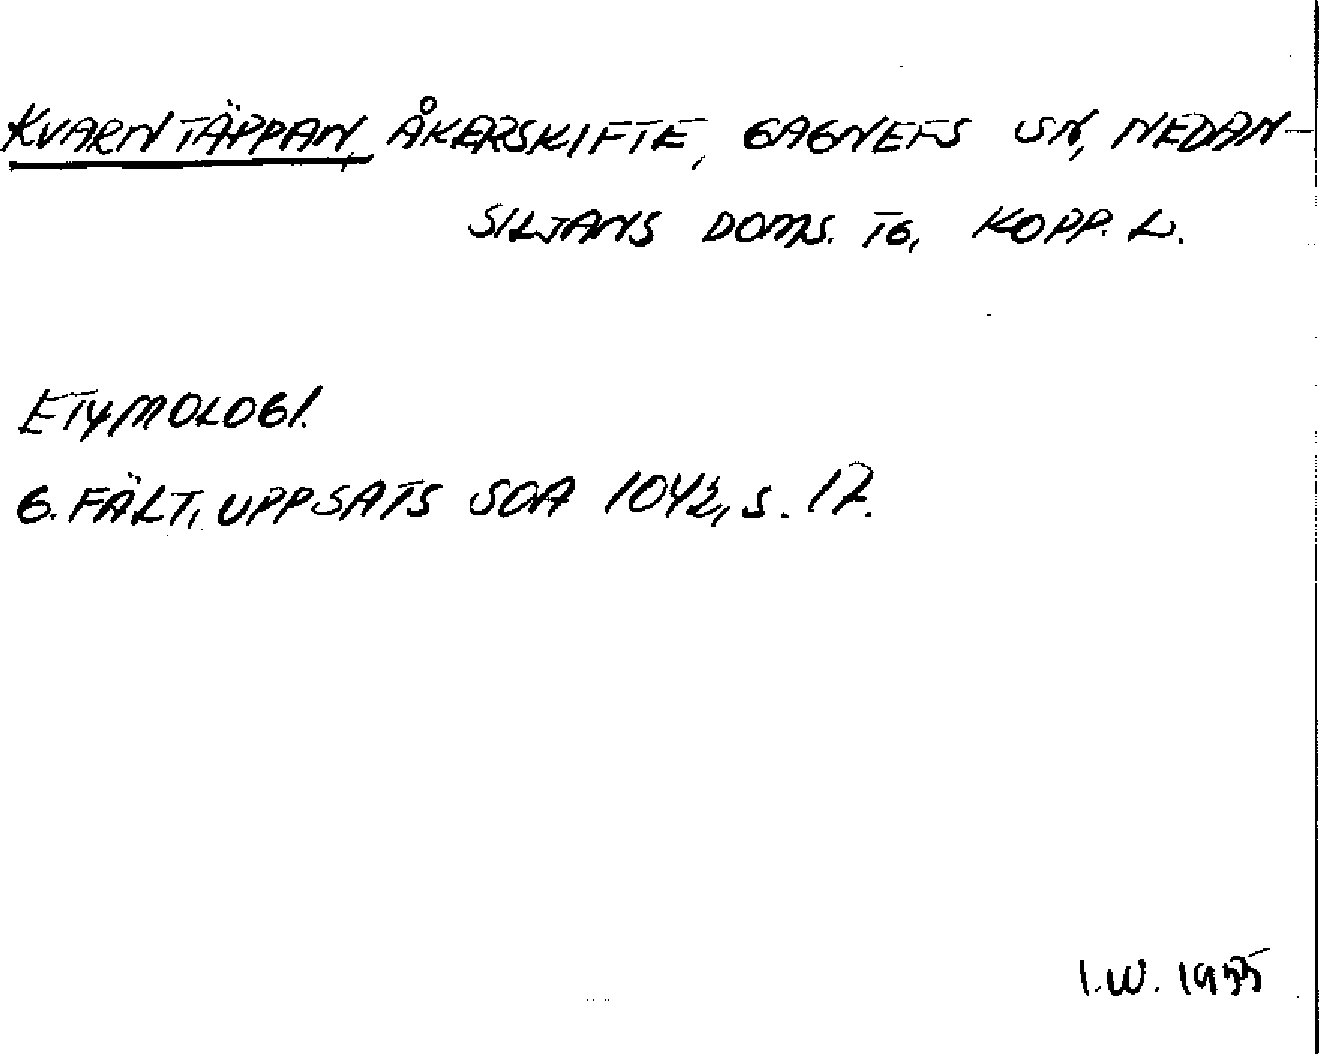 KVARNTÄPPAN, ÅKERSKIFTE, GAGNEFS SN, NEDAN-
SILJANS DOMS. TG, KOPP. L.
ETYMOLOGI.
G. FÄLT, UPPSATS SOA s. 17.
I.W. 1955